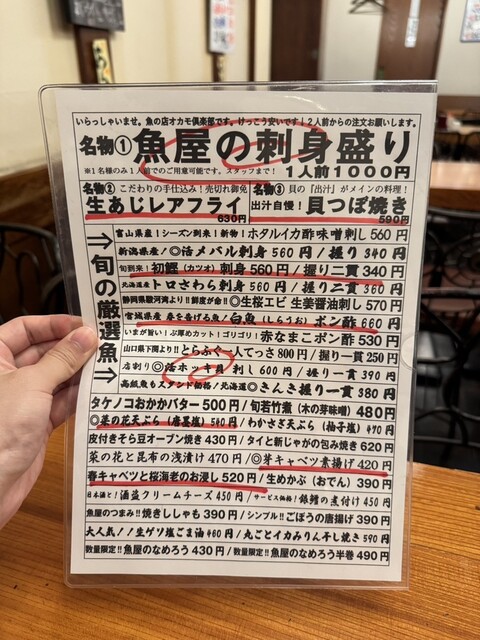 いらっしゃいませ。魚の店オカモ倶楽部です。けっこう安いです!2人前からの注文お願いします。
名物① 魚屋の刺身盛り
※1名様のみ1人前でのご用意可能です。スタッフまで! 1人前1000円
名物② こだわりの手仕込み!売切れ御免
生あじレアフライ
630円
名物③ 貝の「出汁」がメインの料理!
出汁自慢! 貝つぼ焼き
590円
⇒旬の厳選魚⇒
富山県産!シーズン到来!新物! ホタルイカ酢味噌刺し 560円
新潟県産!◎活メバル刺身 560円/握り 340円
旬到来!初鰹(カツオ)刺身 560円/握り二貫 340円
北海道産 トロさわら刺身 560円/握り二貫 360円
静岡県駿河湾より!!鮮度が命!!◎生桜エビ 生姜醤油刺し 570円
宮城県産 春を告げる魚!白魚(しらうお)ポン酢 660円
いまが旨い!ぶ厚めカット!ゴリゴリ!赤なまこポン酢 530円
山口県下関より!!とらふぐ一人てっさ 800円/握り一貫 250円
店割り◎活ホッキ貝 刺し 600円/握り一貫 390円
高級魚もスタンド価格!北海道◎きんき握り一貫 380円
タケノコおかかバター 500円/旬若竹煮(木の芽味噌) 480円
◎菜の花天ぷら(唐墨塩) 540円/わかさぎ天ぷら(柚子塩) 470円
皮付きそら豆オーブン焼き 430円/タイと新じゃがの包み焼き 620円
菜の花と昆布の浅漬け 470円/◎芽キャベツ素揚げ 420円
春キャベツと桜海老のお浸し 520円/生めかぶ(おでん) 390円
日本酒と!酒盗クリームチーズ 450円/サービス価格!銀鱈の煮付け 450円
魚屋のつまみ!!焼きししゃも 390円/シンプル!!ごぼうの唐揚げ 390円
大人気!生ゲソ塩ごま油 460円/丸ごとイカみりん干し焼き 590円
数量限定!!魚屋のなめろう 430円/数量限定!!魚屋のなめろう半巻 490円